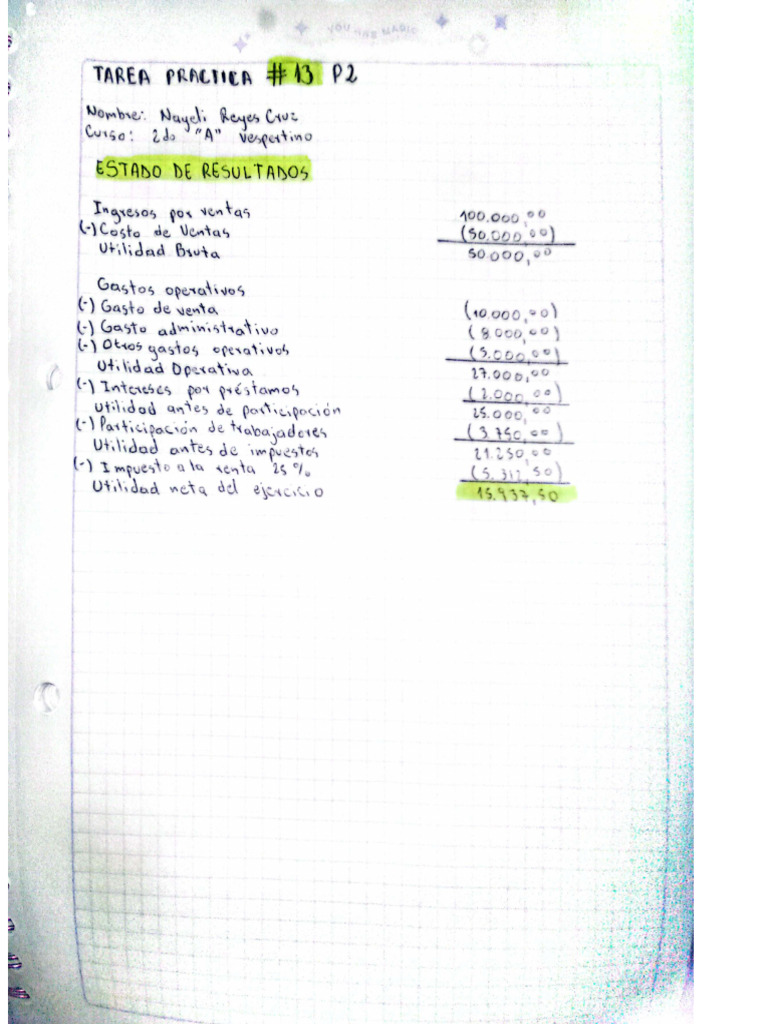 YOU ARE MAGIC
TAREA PRACTICA #13 P2
Nombre: Nayeli Reyes Cruz
Curso: 2do "A" Vespertino
ESTADO DE RESULTADOS
Ingresos por ventas 100.000,00
(-) Costo de Ventas (50.000,00)
Utilidad Bruta 50.000,00
Gastos operativos
(-) Gasto de venta (10.000,00)
(-) Gasto administrativo (8.000,00)
(-) Otros gastos operativos (5.000,00)
Utilidad Operativa 27.000,00
(-) Intereses por préstamos (2.000,00)
Utilidad antes de participación 25.000,00
(-) Participación de trabajadores (3.750,00)
Utilidad antes de impuestos 21.250,00
(-) Impuesto a la renta 25% (5.312,50)
Utilidad neta del ejercicio 15.937,50